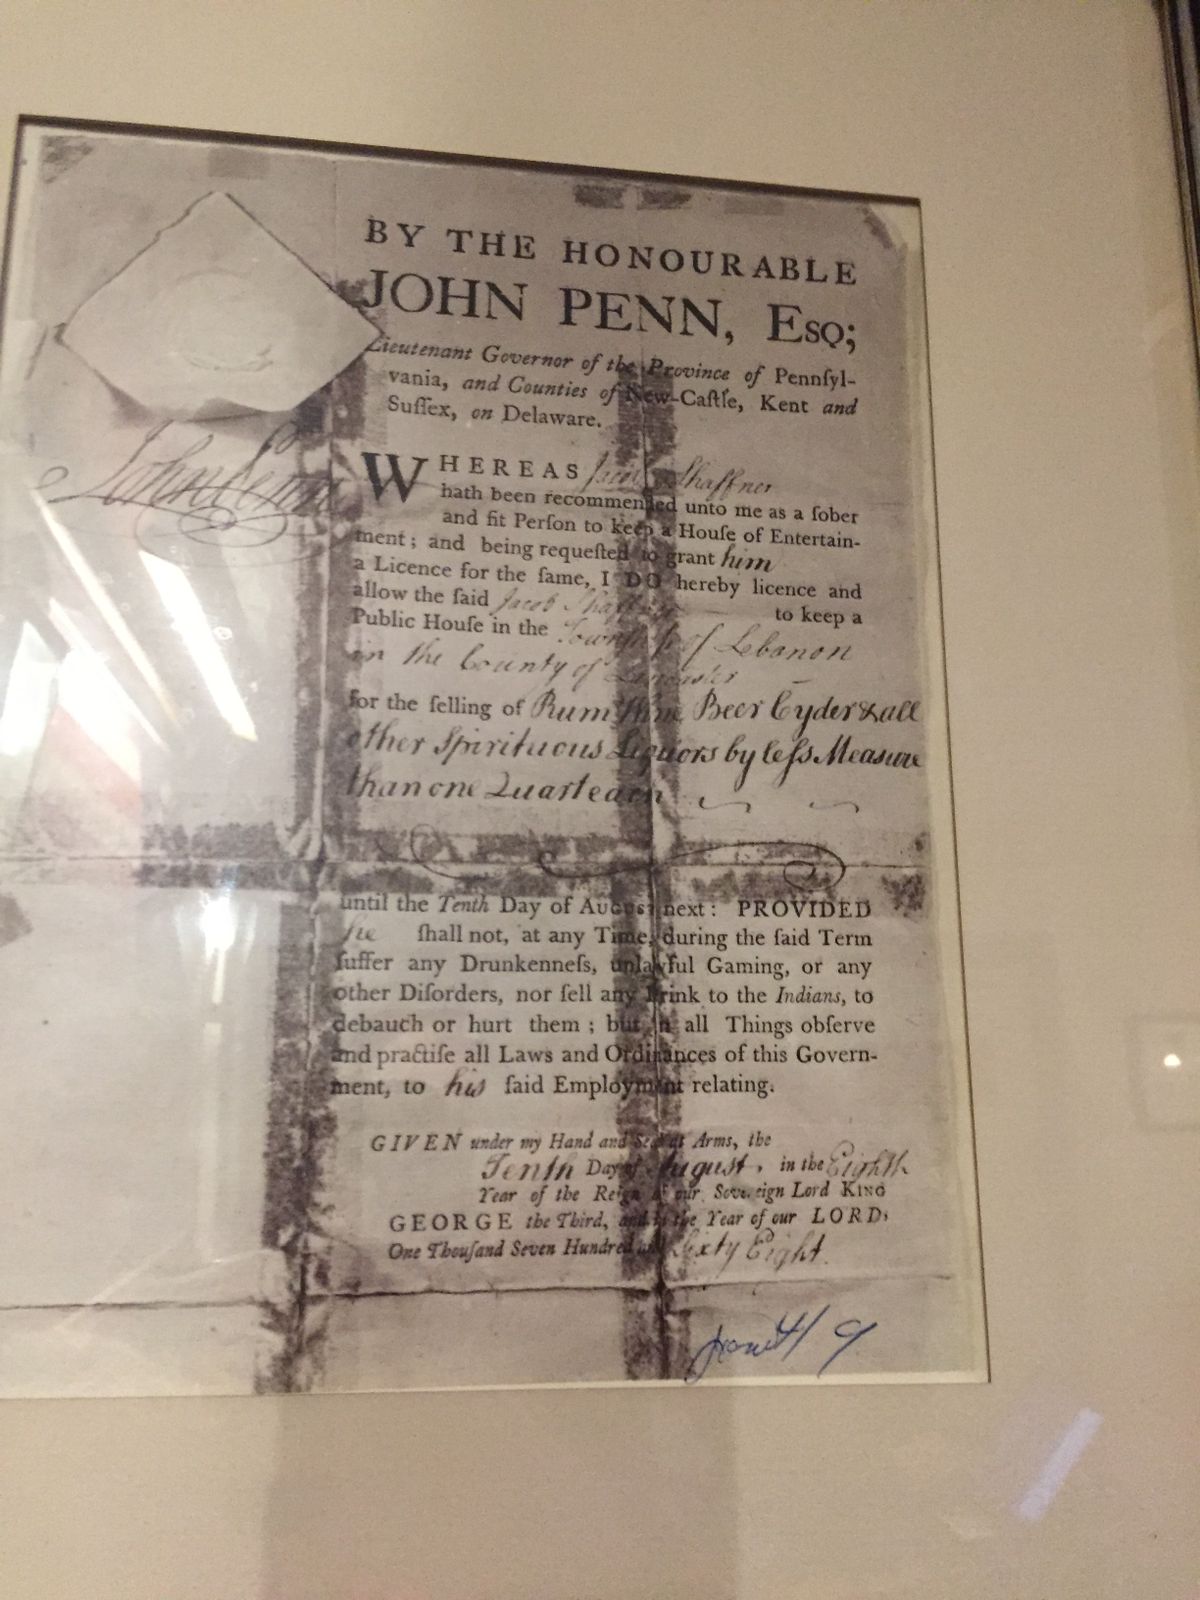 BY THE HONOURABLE
JOHN PENN, Esq;
Lieutenant Governor of the Province of Pennſyl-
vania, and Counties of New-Caſtle, Kent and
Suſſex, on Delaware.
John Penn
WHEREAS Jacob Shaffner
hath been recommended unto me as a ſober
and fit Perſon to keep a Houſe of Entertain-
ment; and being requeſted to grant him
a Licence for the ſame, I DO hereby licence and
allow the ſaid Jacob Shaffner to keep a
Public Houſe in the Township of Lebanon
in the County of Lancaster
for the ſelling of Rum Wine Beer Cyder & all
other Spirituous Liquors by leſs Measure
than one Quart each
until the Tenth Day of August next: PROVIDED
he ſhall not, at any Time, during the ſaid Term
ſuffer any Drunkenneſs, unlawful Gaming, or any
other Diſorders, nor ſell any Drink to the Indians, to
debauch or hurt them; but in all Things obſerve
and practiſe all Laws and Ordinances of this Govern-
ment, to his ſaid Employment relating.
GIVEN under my Hand and Seal at Arms, the
Tenth Day of August, in the Eighth
Year of the Reign of our Sovereign Lord KING
GEORGE the Third, and in the Year of our LORD,
One Thouſand Seven Hundred and Sixty Eight.